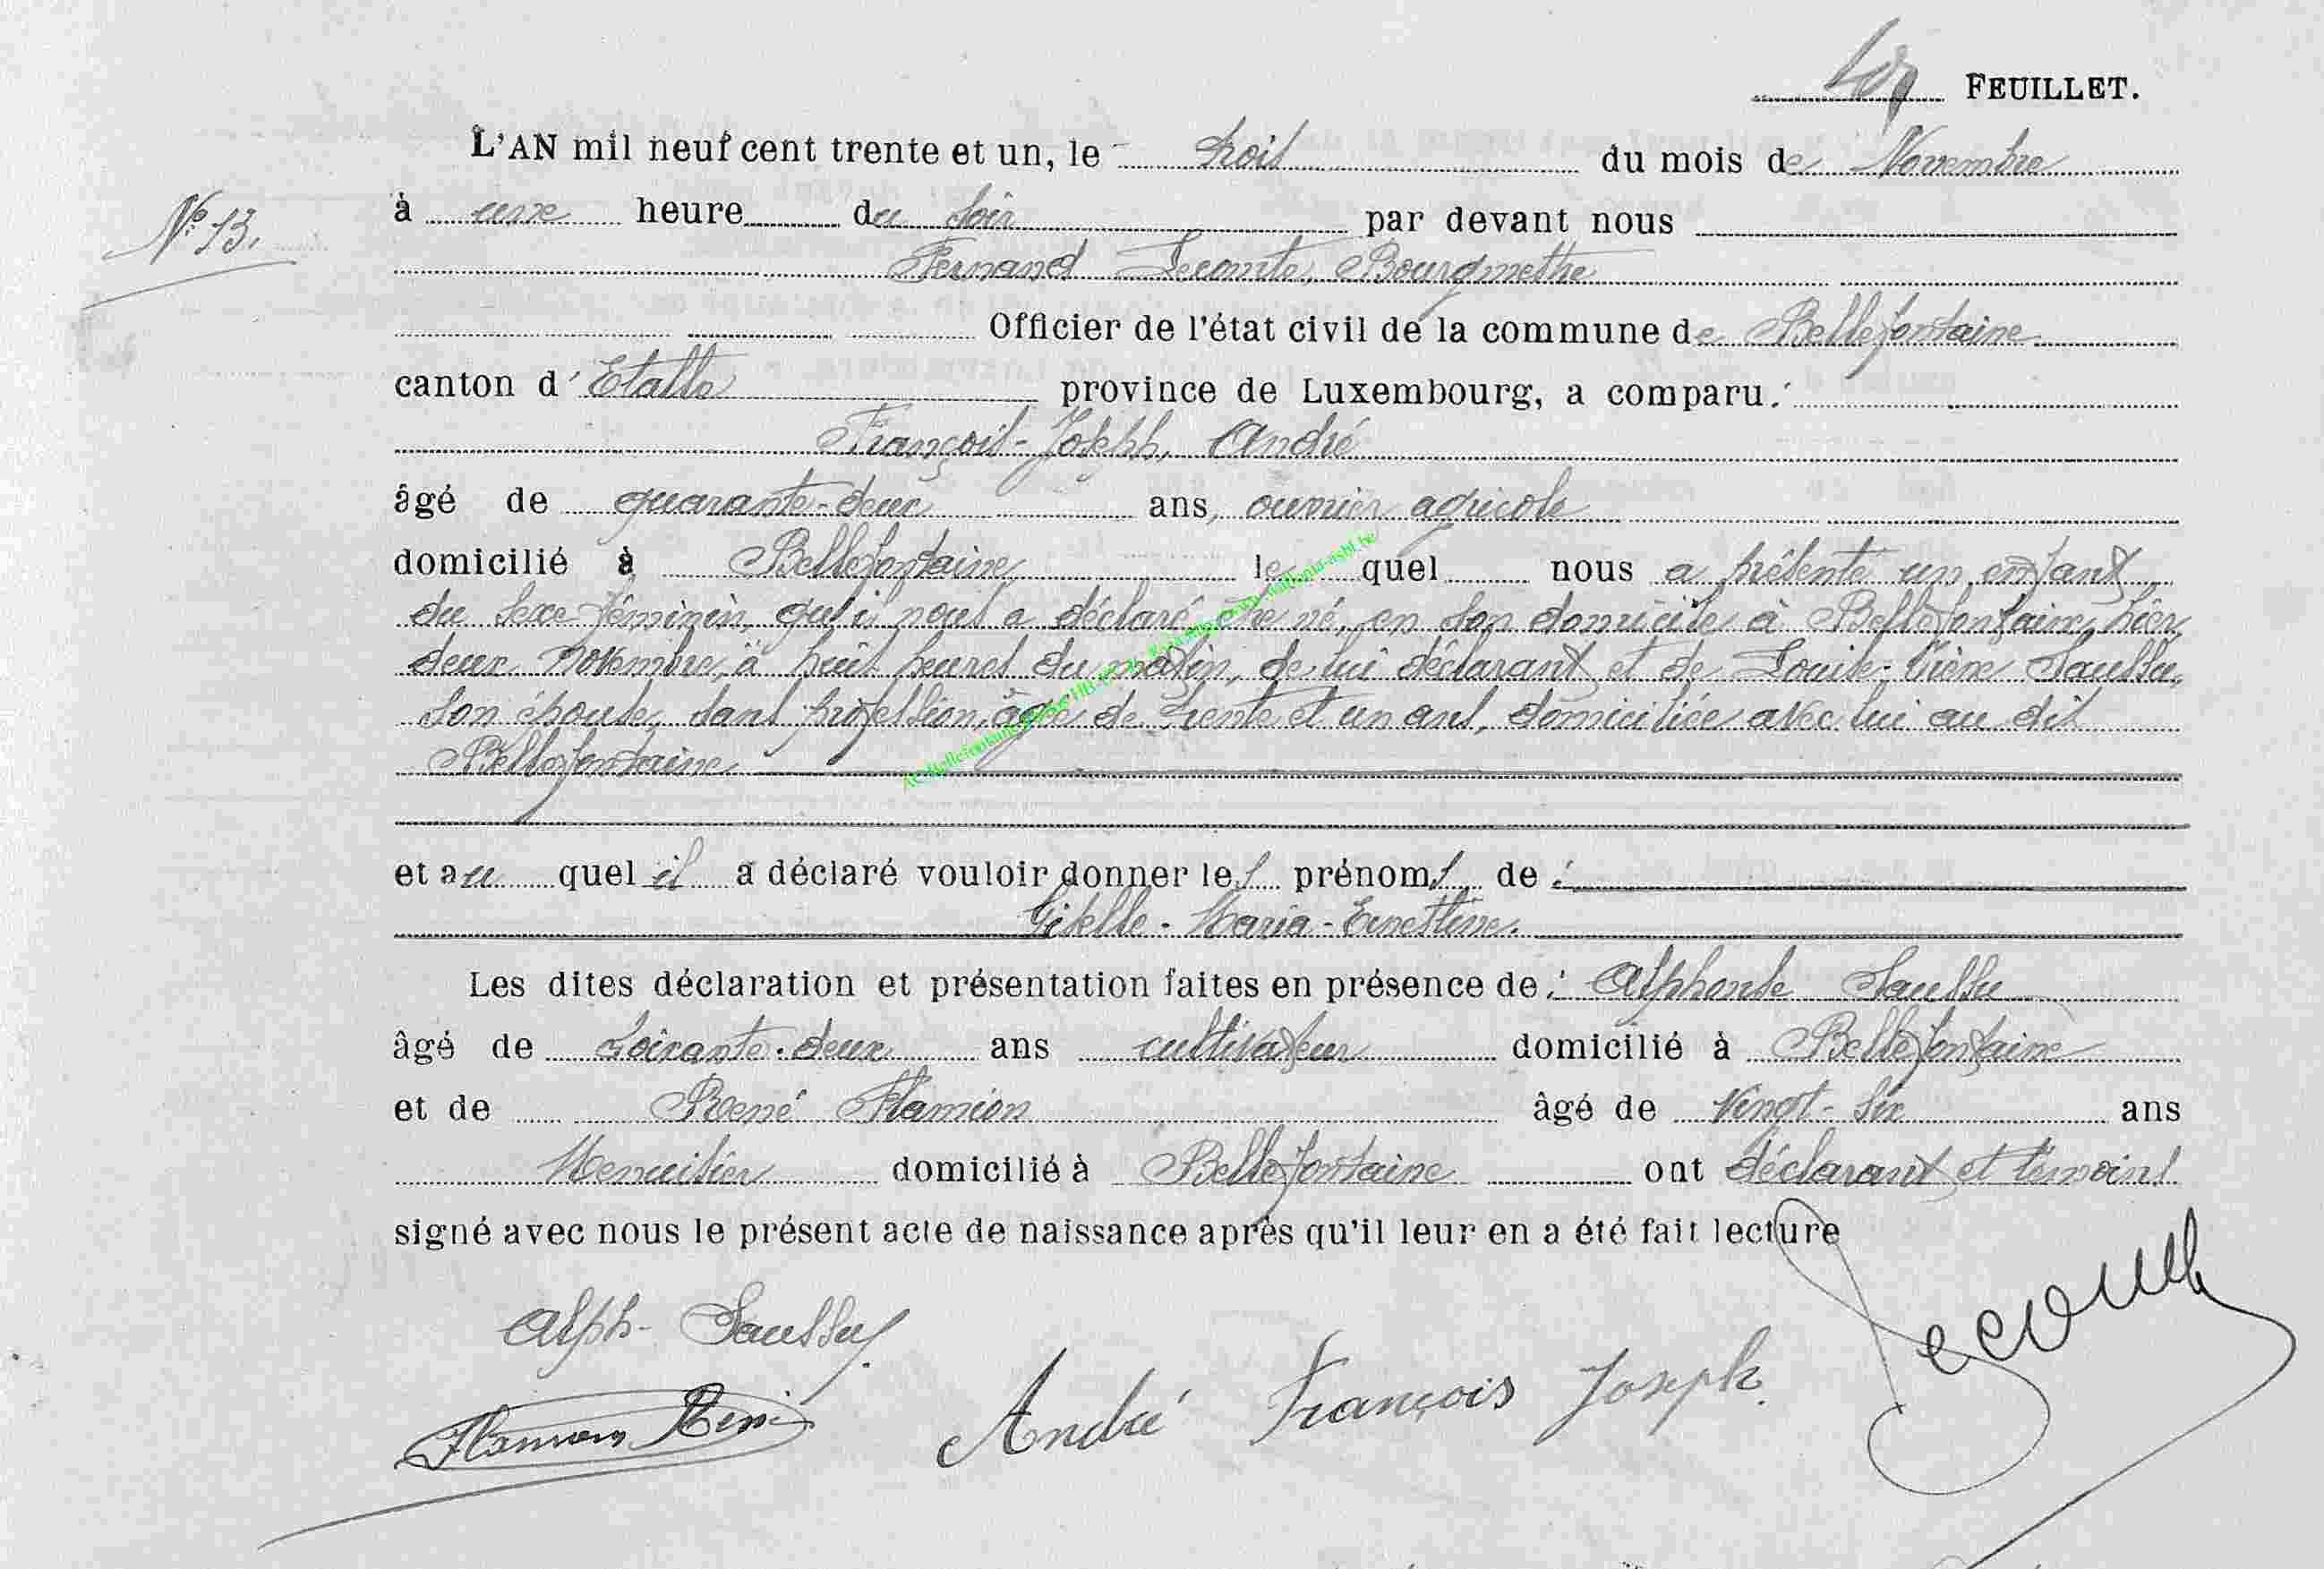 FEUILLET.
L'AN mil neuf cent trente et un, le trois du mois de Novembre
N° 13.
à une heure du soir par devant nous
Fernand Lecomte, Bourgmestre
Officier de l'état civil de la commune de Bellefontaine
canton d'Etalle province de Luxembourg, a comparu :
François-Joseph, André
âgé de quarante-deux ans, ouvrier agricole
domicilié à Bellefontaine, le quel nous a présenté un enfant
du sexe féminin, qu'il nous a déclaré être né, en son domicile à Bellefontaine, hier
deux novembre, à huit heures du matin, de lui déclarant et de Louise Saussu,
son épouse, sans profession, âgée de trente et un ans, domiciliée avec lui au dit
Bellefontaine
et au quel il a déclaré vouloir donner les prénoms de :
Giselle - Maria - Ernestine.
Les dites déclaration et présentation faites en présence de : Alphonse Saussu
âgé de soixante-deux ans cultivateur domicilié à Bellefontaine
et de René Flamion âgé de vingt-six ans
Menuisier domicilié à Bellefontaine ont déclarant et témoins
signé avec nous le présent acte de naissance après qu'il leur en a été fait lecture
Alph- Saussu
Lecomte
André François Joseph.
Flamion René